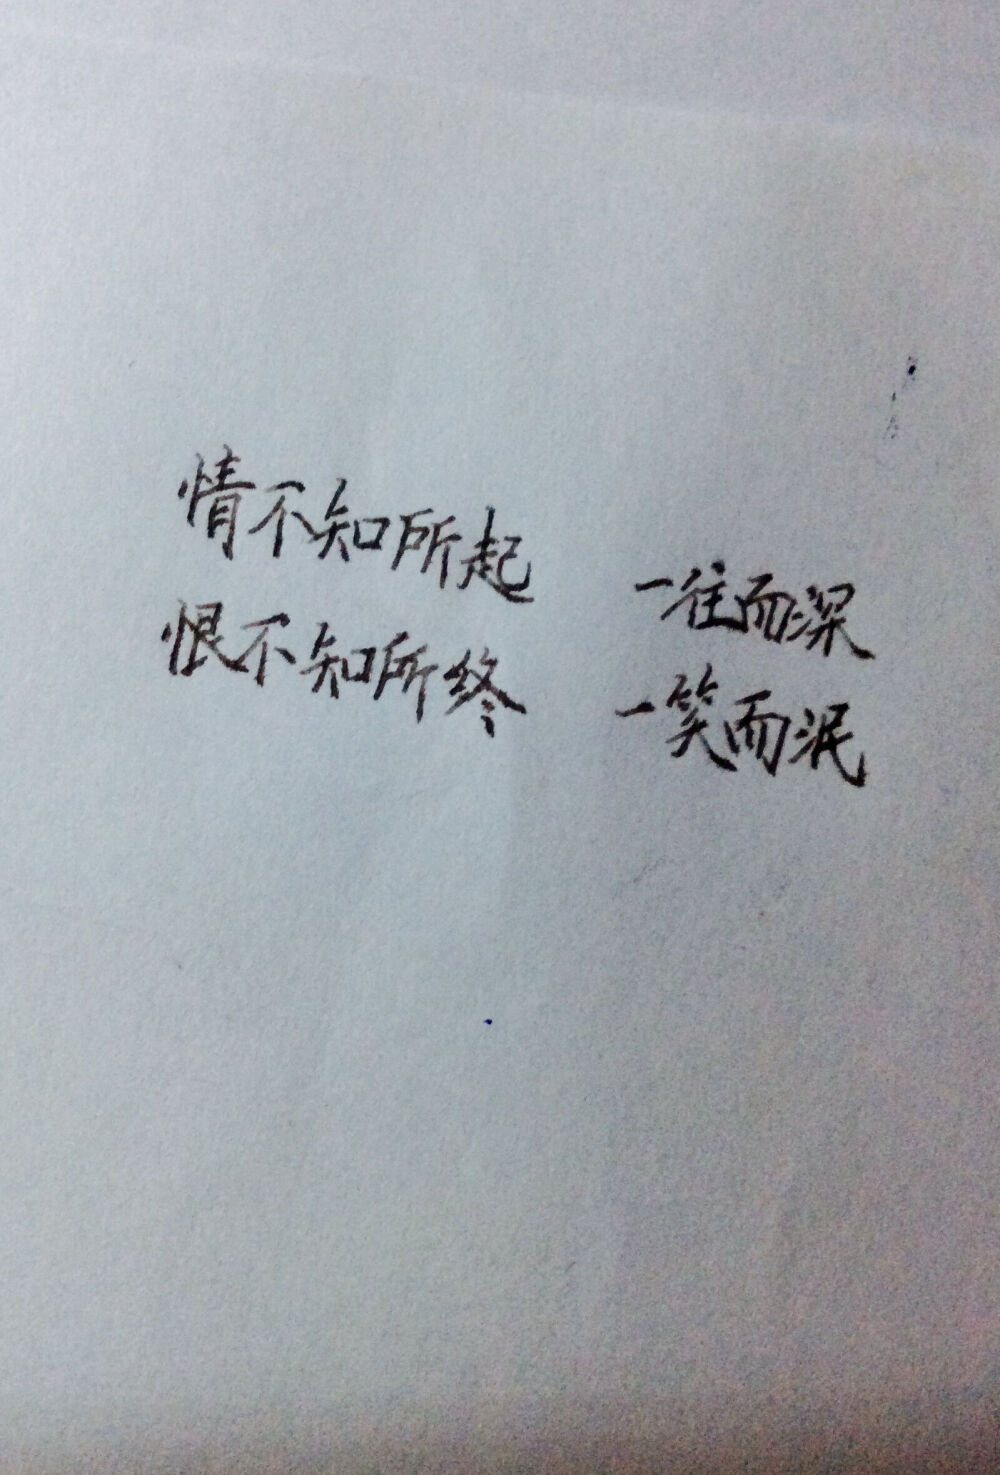 情不知所起 一往而深
恨不知所终 一笑而泯